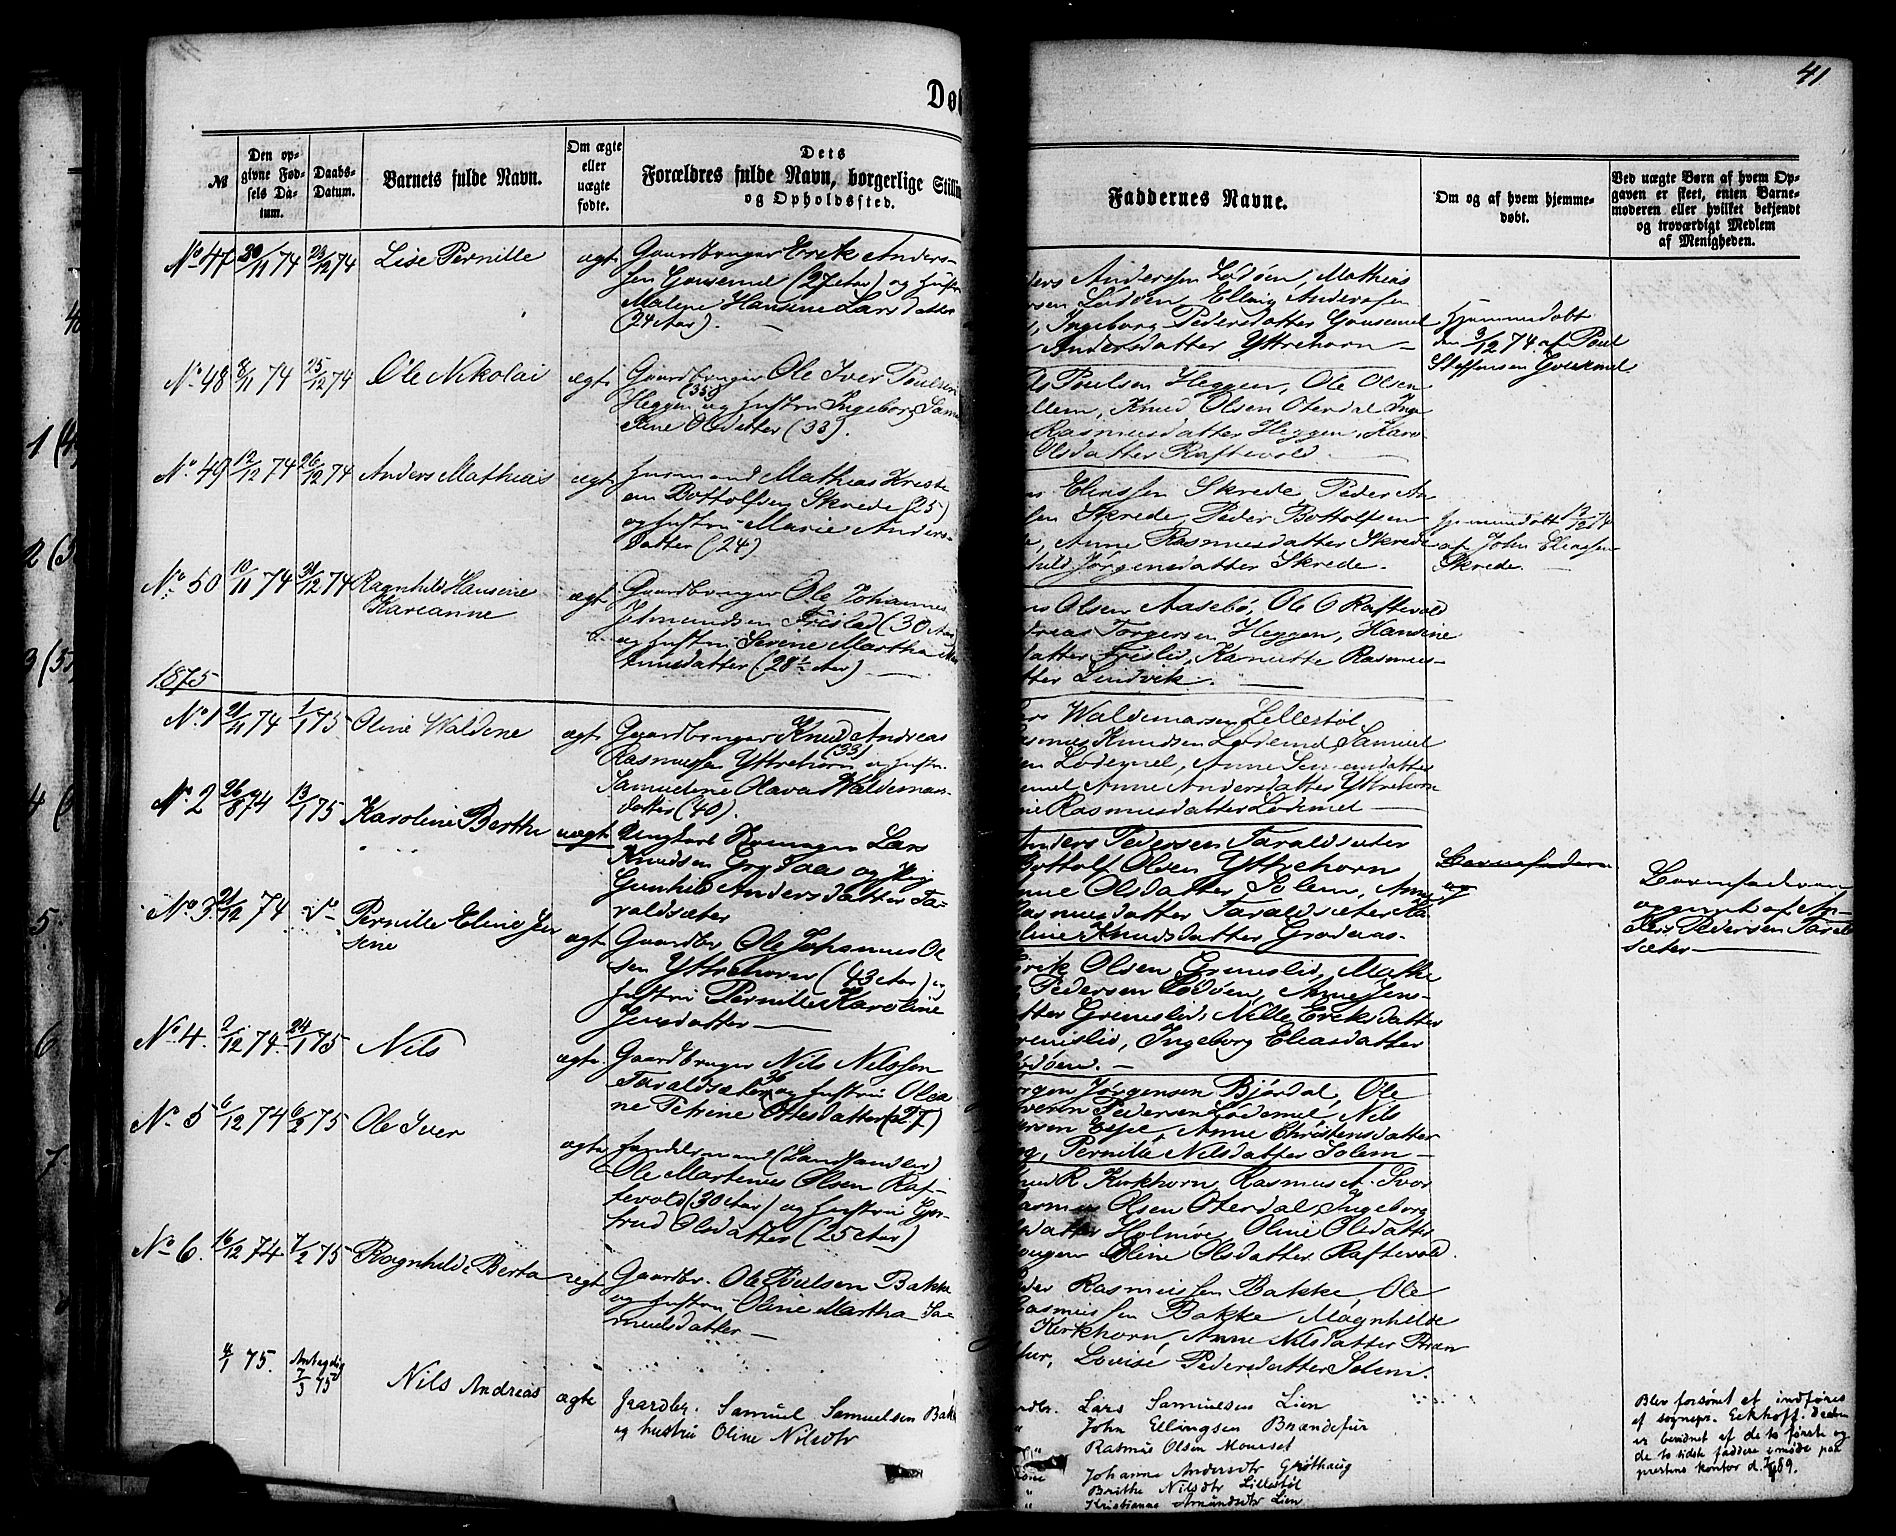 41
Døb
№
Den op-
givne Fød-
sels Da-
tum.
Daabs-
Datum.
Barnets fulde Navn.
Om ægte
eller
uægte
fødte.
Dets
Forældres fulde Navn, borgerlige Stillin
og Opholdssted.
Faddernes Navne.
Om og af hvem hjemme-
døbt.
Ved uægte Børn af hvem Op-
gaven er skeet, enten Barne-
moderen eller hvilket bekjendt
og troværdigt Medlem
af Menigheden.
No 47 30/11 74 23/12 74 Lise Pernille ægt
Gaardbruger Erik Anders-
sen Gausemel (27 Aar) og Hustr
Malene Hansine Larsdatter
(24 Aar).
ders Anderssen Lødøen, Mathias
rsen Lødøen, Elling Anderssen
Ingeborg Pedersdatter Gausemel
Andersdatter Yttrehorn
Hjemmedøbt
den 3/12 74 af Poul
Steffensen Gausemel
No 48 8/11 74 25/12 74 Ole Nikolai ægt
Gaardbruger Ole Iver Poulsen
Heggen (35) og Hustru Ingeborg Samu
eline Olsdatter (33).
ls Poulsen Heggen, Ole Olsen
llem, Knud Olsen Oterdal Inge
Rasmusdatter Heggen, Karo-
Olsdatter Raftevold
No 49 12/12 74 26/12 74 Anders Mathias ægt
Husmand Mathias Kristi
an Bottolfsen Skrede (25)
og Hustru Marie Anders-
datter (24)
Eliassen Skrede, Peder An
sen Skrede, Peder Bottolfsen
Anne Rasmusdatter Skrede
hild Jørgensdatter Skrede.
Hjemmedøbt 12/12 74
af John Eliassen
Skrede.
No 50 10/11 74 31/12 74 Ragnhild Hansine
Karianne
ægt
Gaardbruger Ole Johannes
Jetmundsen Frislid (30 Aar)
og Hustru Serine Martha
datter (28½ Aar)
Olsen Aasebø, Ole O Raftevold
dreas Torgersen Heggen, Hansine
datter Frislid, Karnitte Rasmus-
tter Lindvik.
1875
No 1 21/11 74 1/1 75 Oline Waldine ægt
Gaardbruger Knud Andreas
Rasmussen Yttrehorn (33) og Hustr.
Samueline Olava Waldemars-
datter (40).
Waldemarsen Lillestøl
asmus Knudsen Lødemel, Samuel
en Lødemel, Anne Simensdatter
emel, Anne Andersdatter Yttrehorn
ine Rasmusdatter Lødemel
No 2 26/8 74 13/1 75 Karoline Bertha uægt
Ungkarl Lars
Knudsen Grodaas og Pige
Gunhild Andersdatter Ta-
raldsæter
Anders Pedersen Taraldsæter
Bottolf Olsen Yttrehorn
nne Olsdatter Solem, Anne
Rasmusdatter Taraldsæter Ka
roline Knudsdatter Grodaas.
Barnefaderen
og
Barnefaderen
opgivet af An-
ders Pedersen Tarald
sæter
No 3 21/12 74 do Pernille Eline Jen
sine
ægt
Gaardbr Ole Johannes Ol
sen Yttrehorn (43 Aar) og
Hustru Pernille Karoline
Jensdatter
Erik Olsen Grenislid, Mathe
Pedersen Lødøen, Anne Jens-
tter Grenislid, Nille Eriksdatter
renislid, Ingeborg Eliasdatter
Lødøen.
No 4. 2/12 74. 24/1 75 Nils ægte
Gaardbruger Nils Nilssen
Taraldsæter 36 og Hustru Olea
ne Petrine Ottesdatter (27)
ørgen Jørgensen Bjørdal, Ole
Pedersen Lødemel, Nils
ersen Espe, Anne Christensdatter
Pernille Nilsdatter Solem
No 5 6/12 74 6/2 75 Ole Iver ægte
Handelsmand (Landhandler)
Ole Martinus Olsen Raf-
tevold (30 Aar) og Hustru Ger-
trud Olsdatter (25 Aar)
Knud R Kirkhorn, Rasmus A. Svor
Olsen Oterdal, Ingeborg
datter Holmøe, Oline Olsdatter
Haugen Oline Olsdatter Raftevold.
No 6. 16/12 74 7/2 75 Ragnhilde Berta ægt
Gaardbr. Ole Poulsen Bakke
og Hustru Oline Martha Sa-
muelsdatter
Peder Rasmussen Bakke Ole
Rasmussen Bakke Magnhilde
Kirkhorn, Anne Nilsdatter Bræn
efur, Lovise Pedersdatter Solem.
4/1 75. Antagelig
7/3 75
Nils Andreas ægte
Gaardbr. Samuel Samuelsen Bakk
og hustru Oline Nilsdtr
Gardbr. Lars Samuelsen Lien
" John Ellingsen Brændefur
" Rasmus Olsen Mourset
Kone Johanne Andersdtr Grøthaug
" Brithe Nilsdtr Lillestøl
" Kristianne Amundsdtr Lien
Blev forsømt at indføres
af sogneprs. Eckhoff. Daaben
er bevidnet af de to første og
de to sidste faddere i møde paa
prestens kontor d. 7/4 89.